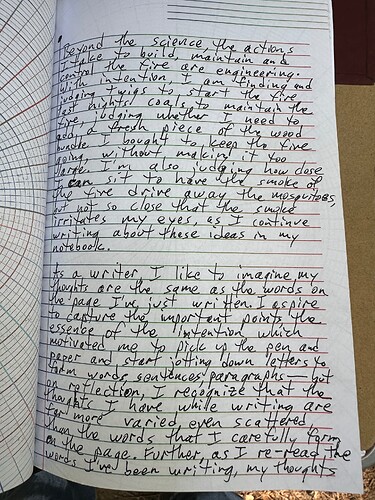 Beyond the science, the actions
I take to build, maintain and
control the fire are engineering.
With intention, I am finding and
judging twigs to start the fire
last nights' coals, to maintain the
fire, judging whether I need to
add a fresh piece of the wood
bundle I bought to keep the fire
going, without makin it too
large. I'm also judging how close
I can sit to have the smoke of
the fire drive away the mosquitoes,
but not so close that the smoke
irritates my eyes, as I continue
writing about these ideas in my
notebook.
As a writer, I like to imagine my
thoughts are the same as the words on
the page I've just written. I aspire
to capture the important points the
essence of the intention which
motivated me to pick up the pen and
paper and start jotting down letters to
form words, sentences, paragraphs — but
on reflection, I recognize that the
thoughts I have while writing are
far more varied, even scattered
than the words that I carefully form
on the page. Further, as I re-read the
words I've been writing, my thoughts